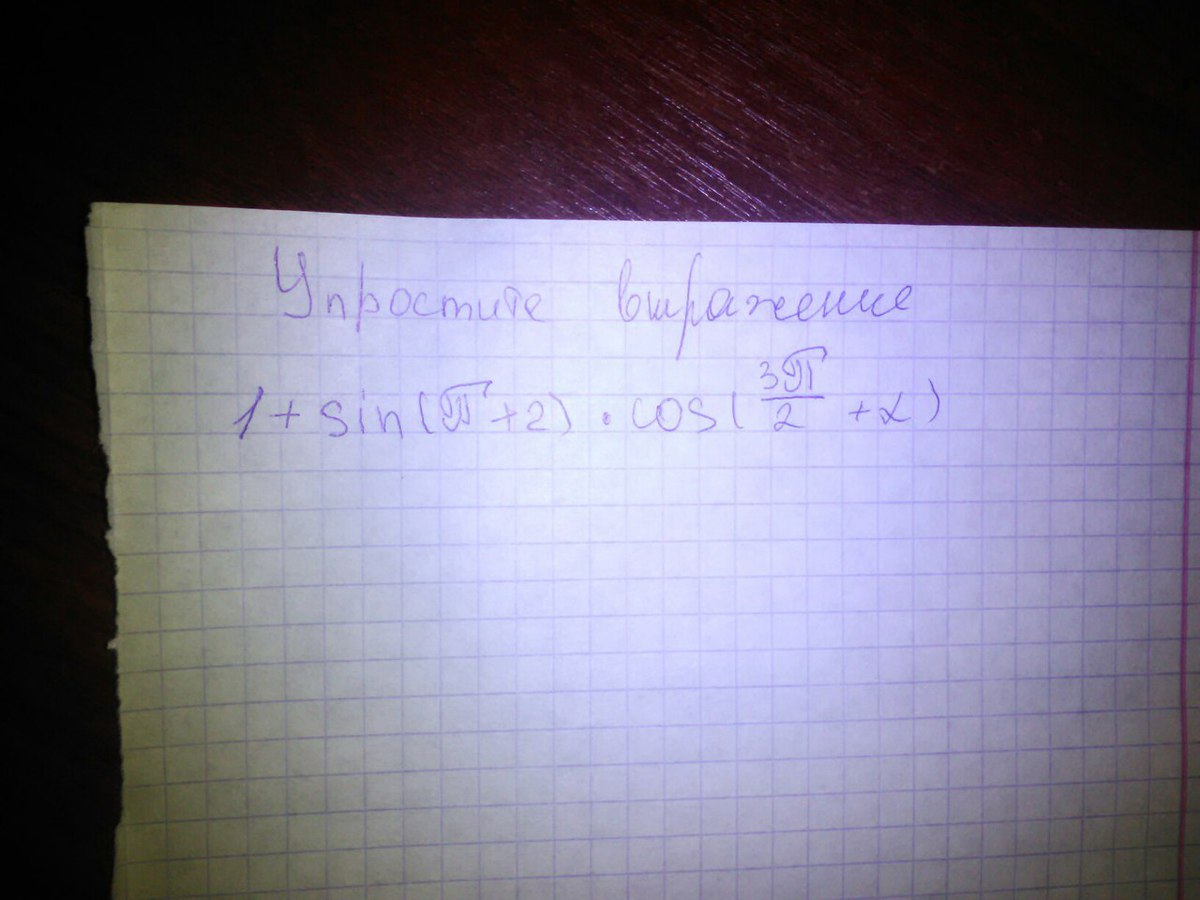 Упростите выражение
1 + sin(π + 2) · cos(3π/2 + α)